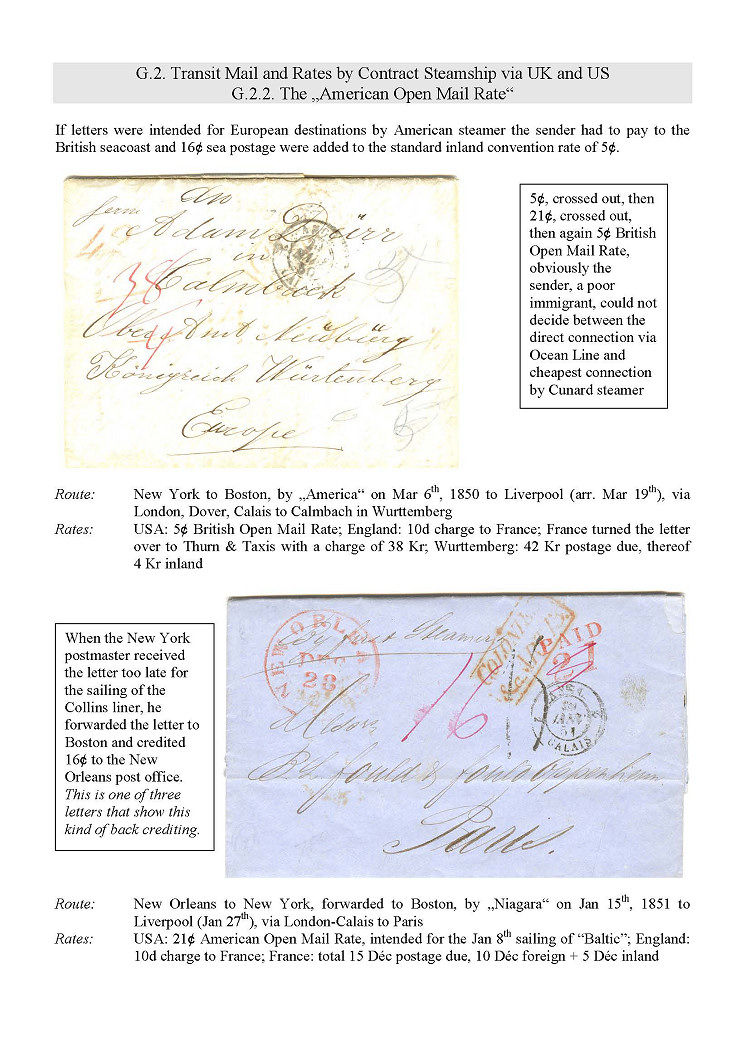 G.2. Transit Mail and Rates by Contract Steamship via UK and US
G.2.2. The „American Open Mail Rate“
If letters were intended for European destinations by American steamer the sender had to pay to the
British seacoast and 16¢ sea postage were added to the standard inland convention rate of 5¢.
An
Herrn Adam Dürr
in
Calmbach
Ober Amt Neübürg
Königreich Würtenberg
Europe
38
4
5
5
5¢, crossed out, then
21¢, crossed out,
then again 5¢ British
Open Mail Rate,
obviously the
sender, a poor
immigrant, could not
decide between the
direct connection via
Ocean Line and
cheapest connection
by Cunard steamer
Route: New York to Boston, by „America“ on Mar 6th, 1850 to Liverpool (arr. Mar 19th), via
London, Dover, Calais to Calmbach in Wurttemberg
Rates: USA: 5¢ British Open Mail Rate; England: 10d charge to France; France turned the letter
over to Thurn & Taxis with a charge of 38 Kr; Wurttemberg: 42 Kr postage due, thereof
4 Kr inland
When the New York
postmaster received
the letter too late for
the sailing of the
Collins liner, he
forwarded the letter to
Boston and credited
16¢ to the New
Orleans post office.
This is one of three
letters that show this
kind of back crediting.
NEW ORLEA
DEC
28
By first Steamer
COLONIES
&c. ART.
PAID
21
16
JANV
51
CALAIS
B. L. Fould & Fould Oppenheim
Paris.
Route: New Orleans to New York, forwarded to Boston, by „Niagara“ on Jan 15th, 1851 to
Liverpool (Jan 27th), via London-Calais to Paris
Rates: USA: 21¢ American Open Mail Rate, intended for the Jan 8th sailing of “Baltic”; England:
10d charge to France; France: total 15 Déc postage due, 10 Déc foreign + 5 Déc inland